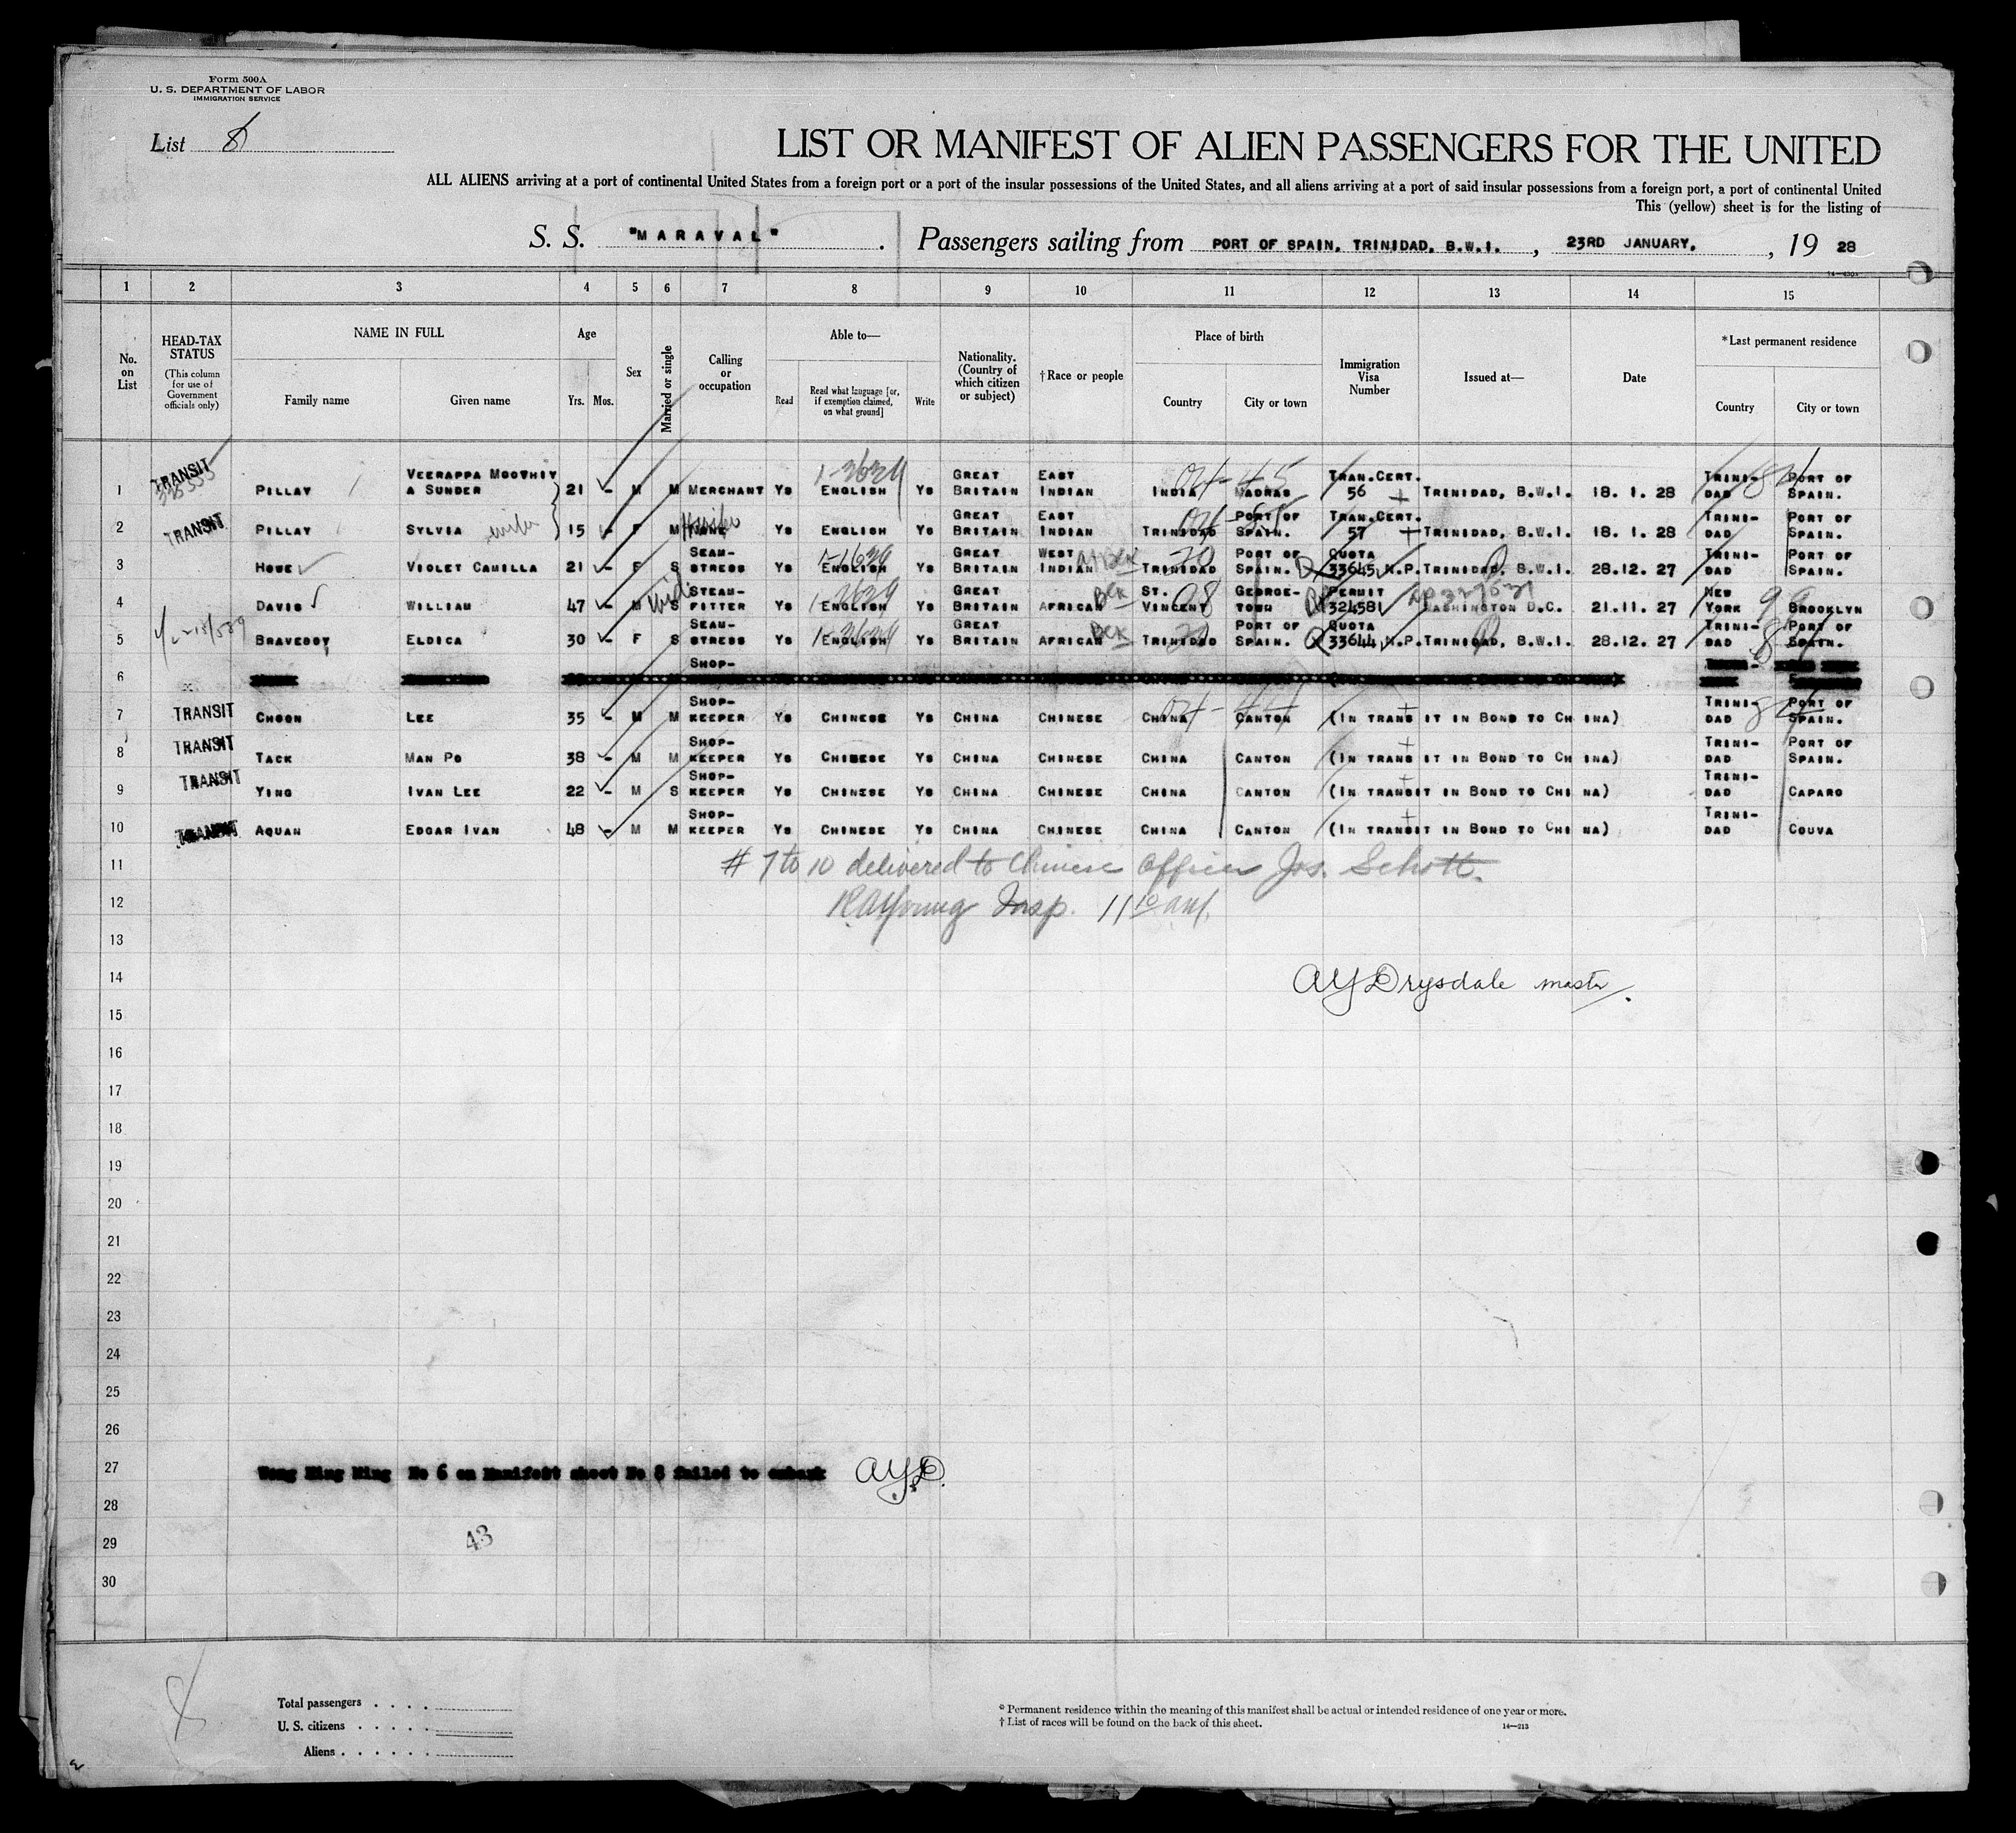 Form 500A
U. S. DEPARTMENT OF LABOR
IMMIGRATION SERVICE
List 8
LIST OR MANIFEST OF ALIEN PASSENGERS FOR THE UNITED
ALL ALIENS arriving at a port of continental United States from a foreign port or a port of the insular possessions of the United States, and all aliens arriving at a port of said insular possessions from a foreign port, a port of continental United
This (yellow) sheet is for the listing of
S. S. "MARAVAL" . Passengers sailing from PORT OF SPAIN, TRINIDAD, B.W.I. , 23RD JANUARY, , 19 28
1 2 3 4 5 6 7 8 9 10 11 12 13 14 15
No. on List
HEAD-TAX STATUS (This column for use of Government officials only)
NAME IN FULL
Family name Given name
Age
Yrs. Mos.
Sex
Married or single
Calling or occupation
Able to—
Read Read what language [or, if exemption claimed, on what ground] Write
Nationality. (Country of which citizen or subject)
†Race or people
Place of birth
Country City or town
Immigration Visa Number
Issued at—
Date
*Last permanent residence
Country City or town
1 TRANSIT PILLAY VEERAPPA MOOTHIY A SUNDER 21 - M M MERCHANT YS ENGLISH YS GREAT BRITAIN EAST INDIAN INDIA MADRAS TRAN.CERT. 56 TRINIDAD, B.W.I. 18. 1. 28 TRINI-DAD PORT OF SPAIN.
2 TRANSIT PILLAY SYLVIA wife 15 - F M NONE YS ENGLISH YS GREAT BRITAIN EAST INDIAN TRINIDAD PORT OF SPAIN. TRAN.CERT. 57 TRINIDAD, B.W.I. 18. 1. 28 TRINI-DAD PORT OF SPAIN.
3 HOWE VIOLET CAMILLA 21 - F S SEAM-STRESS YS ENGLISH YS GREAT BRITAIN WEST INDIAN TRINIDAD PORT OF SPAIN. QUOTA 33645 N.P. TRINIDAD, B.W.I. 28.12. 27 TRINI-DAD PORT OF SPAIN.
4 DAVIS WILLIAM 47 - M S STEAM-FITTER YS ENGLISH YS GREAT BRITAIN AFRICAN ST. VINCENT GEORGE-TOWN PERMIT 324581 WASHINGTON D.C. 21.11. 27 NEW YORK BROOKLYN
5 BRAVEBOY ELDICA 30 - F S SEAM-STRESS YS ENGLISH YS GREAT BRITAIN AFRICAN TRINIDAD PORT OF SPAIN. QUOTA 33644 N.P. TRINIDAD, B.W.I. 28.12. 27 TRINI-DAD PORT OF SPAIN.
6 SHOP-
7 TRANSIT CHOON LEE 35 - M M SHOP-KEEPER YS CHINESE YS CHINA CHINESE CHINA CANTON (IN TRANS IT IN BOND TO CH INA) TRINI-DAD PORT OF SPAIN.
8 TRANSIT TACK MAN PO 38 - M M SHOP-KEEPER YS CHINESE YS CHINA CHINESE CHINA CANTON (IN TRANS IT IN BOND TO CH INA) TRINI-DAD PORT OF SPAIN.
9 TRANSIT YING IVAN LEE 22 - M S SHOP-KEEPER YS CHINESE YS CHINA CHINESE CHINA CANTON (IN TRANSIT IN BOND TO CHI NA) TRINI-DAD CAPARO
10 TRANSIT AQUAN EDGAR IVAN 48 - M M SHOP-KEEPER YS CHINESE YS CHINA CHINESE CHINA CANTON (IN TRANSIT IN BOND TO CHI NA) TRINI-DAD COUVA
11 # 7 to 10 delivered to Chinese Officer Jos. Schott.
12 Insp. 11 10 am.
13
14 AYDrysdale master.
15
16
17
18
19
20
21
22
23
24
25
26
27 Wong Ming No 6 on Manifest sheet No 8 failed to embark AYD.
28
29 43
30
Total passengers . . . .
U. S. citizens . . . . .
Aliens . . . . . .
* Permanent residence within the meaning of this manifest shall be actual or intended residence of one year or more.
† List of races will be found on the back of this sheet.
14—213